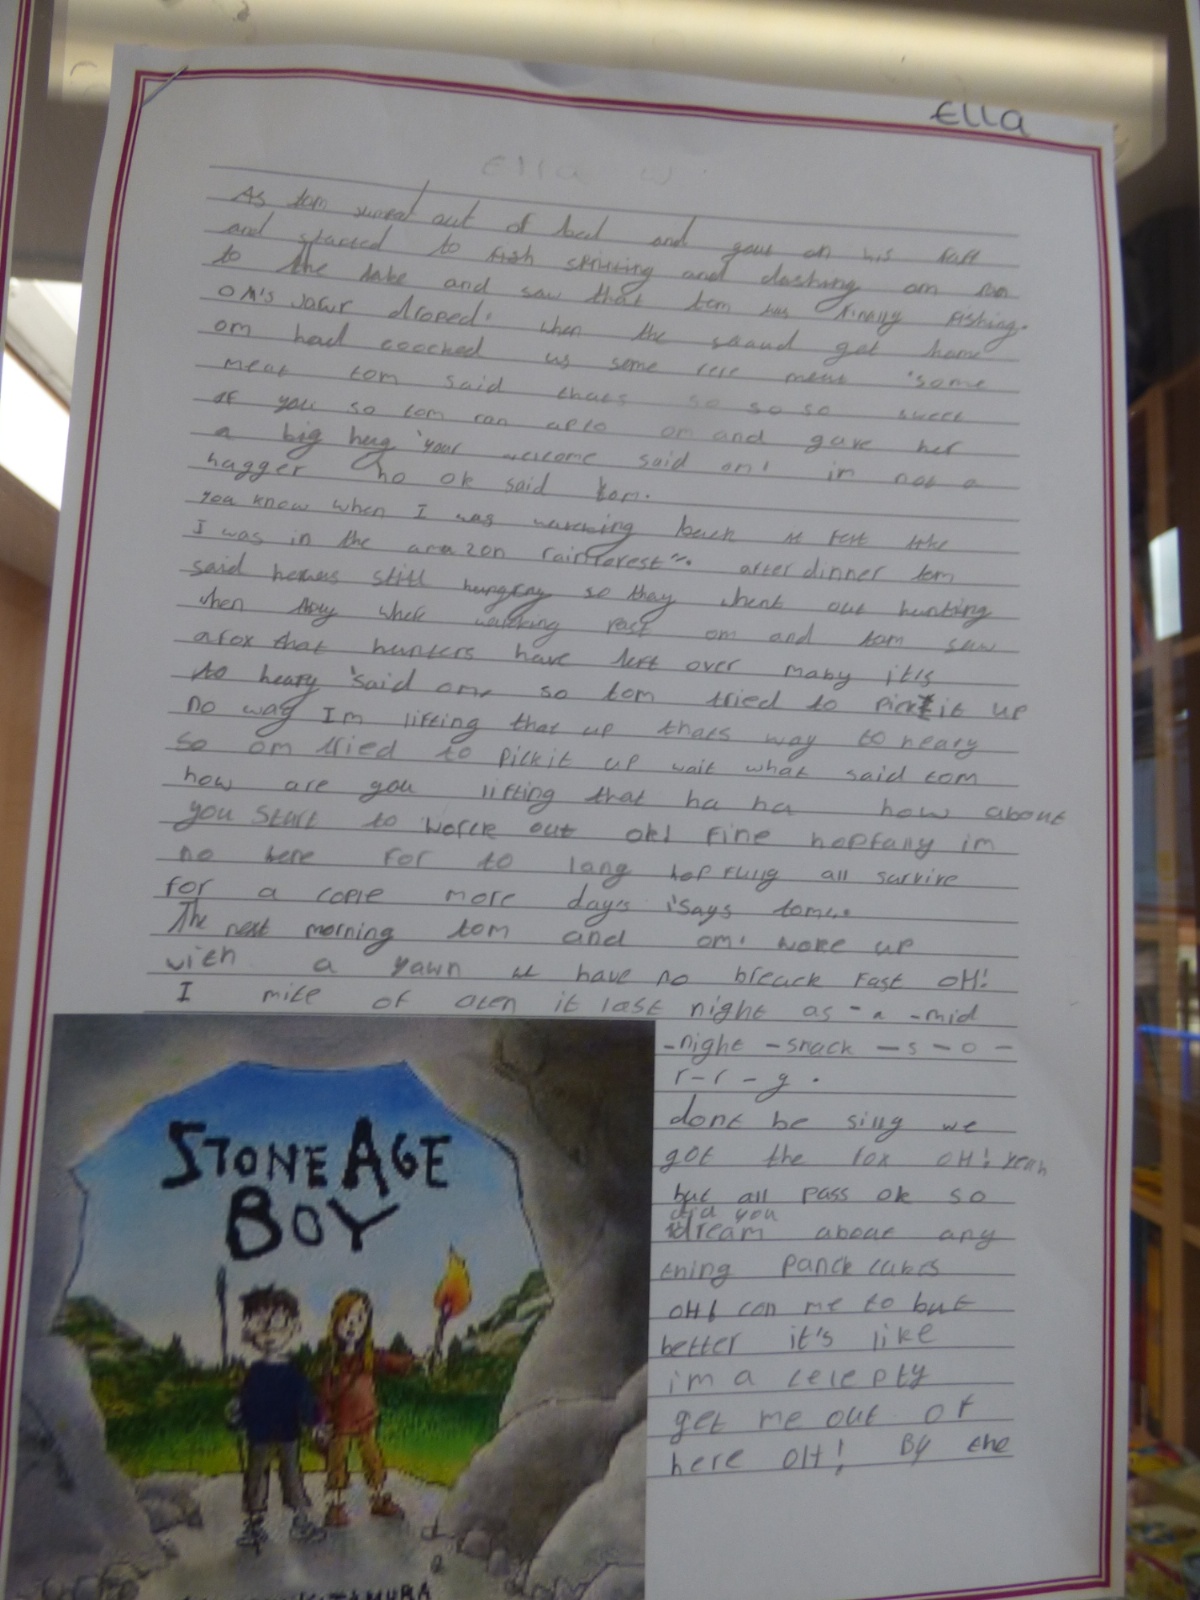 ELLA
Ella W.
As tom out of bed and on his
and started to fish and dashing om ran
to the lake and saw that tom was finnly fishing.
OM's droped. when the get home
om had coocked us some rere meat 'some
meat tom said thats so so so sweet
of you so tom ran upto om and gave her
a big hug 'your welcome said om! im not a
hagger ho ok said tom.
you know when I was back it felt like
I was in the amazon rainforest". after dinner tom
said hewas still hungray so thay whent out hunting
when thay where walking past om and tom saw
afox that hunters have left over maby itis
to heavy 'said om, so tom tried to pickit up
no way Im lifting that up thats way to heavy
so om tried to pickit up wait what said tom
how are you lifting that ha ha how about
you start to worck out ok! fine hopfany im
no here for to lang hopfuly all survive
for a cople more days 'says tom..
The next morning tom and om. woke up
with a yawn we have no breack fast OH!
I mite of aten it last night as - a -mid
-night -snack - s - o -
r-r-g.
dont be silly we
got the fox OH! yeah
but all pass ok so
did you
dream about any
thing panck cakes
OH! con me to but
better it's like
im a celepty
get me out of
here OH! By the
STONE AGE
BOY
KITAMURA